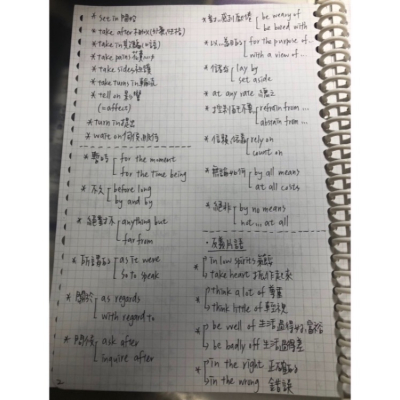 * see in
* take after
* take in
* take pains
* take sides
* take turns in 輪流
* tell on 影響
(=affect)
* turn in 提出
* wait on
* 暫時 for the moment
for the time being
* 不久 before long
by and by
* 絕對不 anything but
far from
* 所謂的 as it were
so to speak
* 關於 as regards
with regard to
* 問候 ask after
inquire after
be weary of
be bored with
for the purpose of ...
with a view of ...
lay by
set aside
* at any rate 總之
refrain from ...
abstain from ...
* 信賴 rely on
count on
* 無論如何 by all means
at all costs
* 絕非 by no means
not ... at all
反義片語
* in low spirits
take heart 振作起來
* think a lot of 尊重
think little of 輕視
* be well of 生活過得
be badly off 生活過得差
* in the right 正確的
in the wrong 錯誤